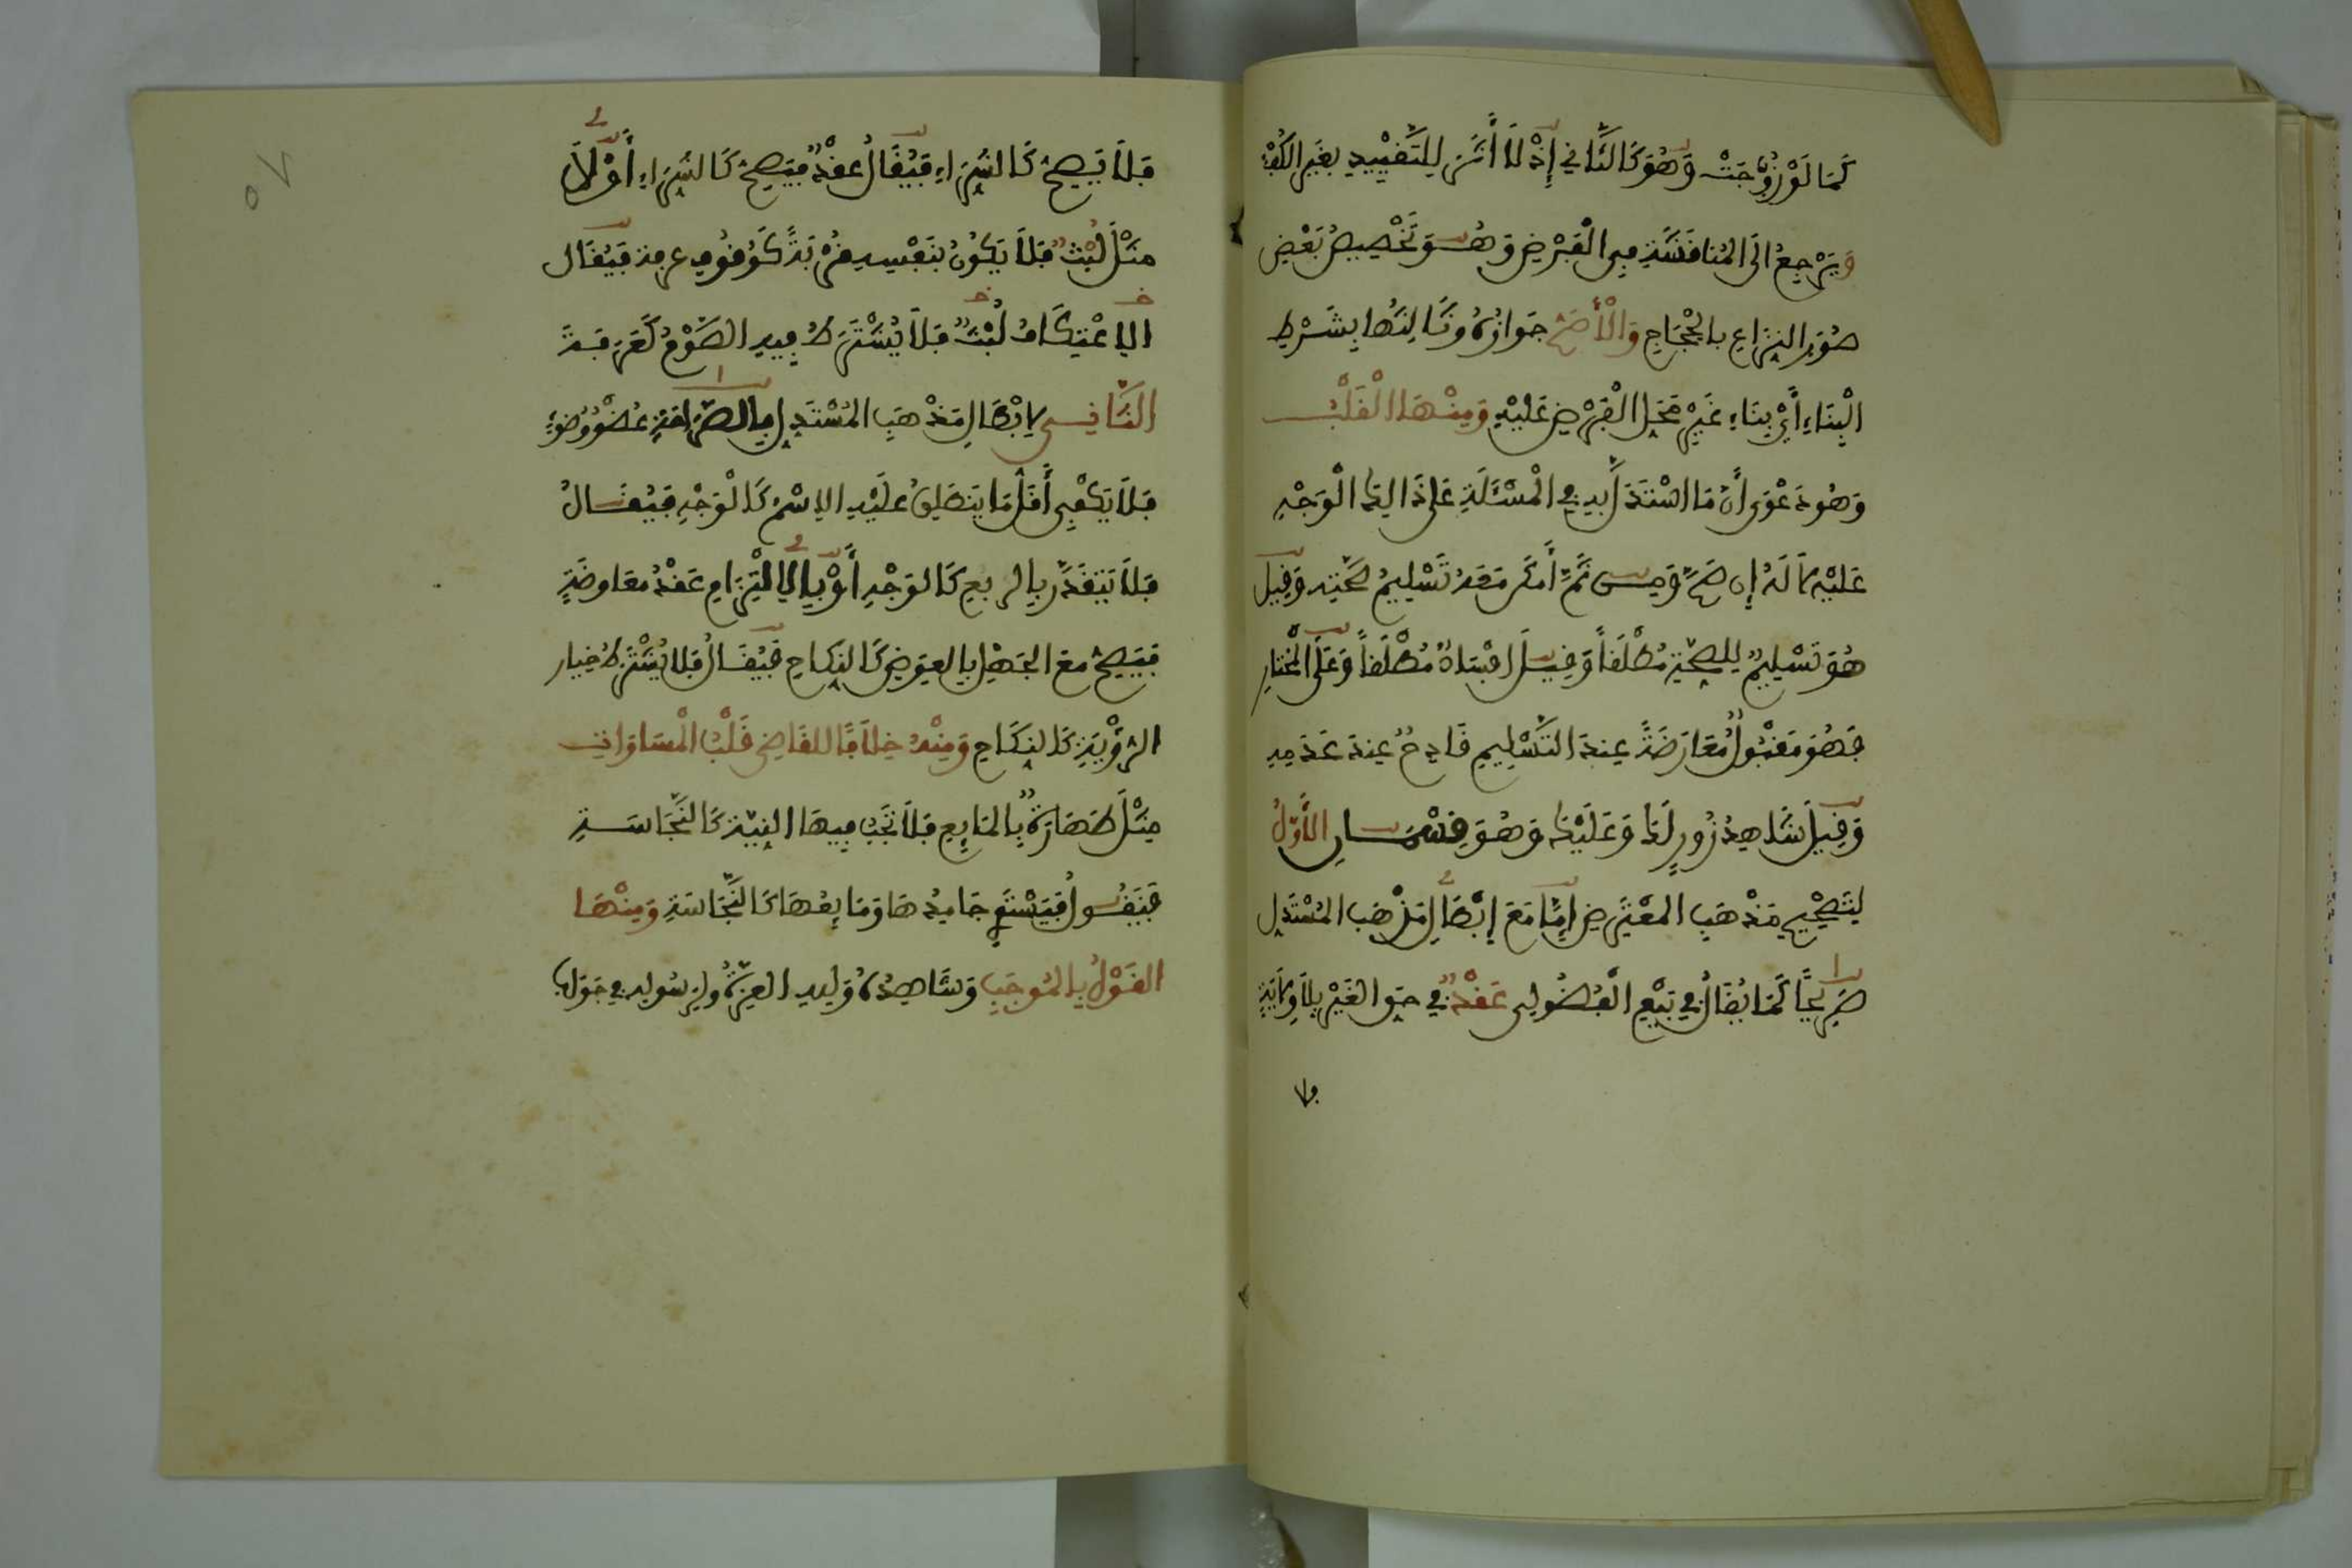 كَمَا لَوْ زُوِّجَتْ وَهُوَ كَالثَّانِي إِذْ لَا أَثَرَ لِلتَّقْيِيدِ بِغَيْرِ الكُفْءِ
وَيَرْجِعُ الَى المُنَاقَشَةِ فِي الْفَرْضِ وَهُوَ تَخْصِيصُ بَعْضِ
صُوَرِ النِّزَاعِ بالحِجَاجِ وَالْأَصَحُّ جَوَازُهُ وثَالِثُهَا بِشَرْطِ
الْبِنَاءِ أَيْ بِنَاءِ غَيْرِ مَحَلِّ الْفَرْضِ عَلَيْهِ وَمِنْهَا الْقَلْبُ
وَهُوَ دَعْوَى أَنَّ مَا اسْتَدَلَّ بِهِ فِي الْمَسْئَلَةِ عَلَى ذَالِكَ الْوَجْهِ
عَلَيْهِ لَا لَهُ إِن صَحَّ وَمِن ثَمَّ أَمْكَنَ مَعَهُ تَسْلِيمُ صِحَّتِهِ وَقِيلَ
هُوَ تَسْلِيمٌ لِلصِّحَّةِ مُطْلَقاً وَقِيلَ افْسَادٌ مُطْلَقاً وَعَلَى الْمُخْتَارِ
فَهُوَ مَقْبُولٌ مُعَارَضَةً عِندَ التَّسْلِيمِ قَادِحٌ عِندَ عَدَمِهِ
وَقِيلَ شَاهِدُ زُورٍ لَكَ وَعَلَيْكَ وَهُوَ قِسْمَانِ الْأَوَّلُ
لِتَصْحِيحِ مَذْهَبِ المعْتَرِضِ إِمَّا مَعَ إِبْطَالِ مَذْهَبِ المُسْتَدِلِّ
صَرِيحًا كَمَا يُقَالُ فِي بَيْعِ الْفُضُولِي عَقْدٌ فِي حَقِّ الغَيْرِ بِلَا وِلَايَةٍ
فلا
فَلَا يَصِحُّ كَالشِّرَاءِ فَيُقَالُ عَقْدٌ فَيَصِحُّ كَالشِّرَاءِ أَوْ لَا
مِثْلَ لُبْثٌ فَلَا يَكُونُ بِنَفْسِهِ قُرْبَةً كَوُقُوفِ عرفة فَيُقَال
الِاعْتِكَافُ لُبْثٌ فَلَا يُشْتَرَطُ فِيهِ الصَّوْمُ كَعَرَفَةَ
الثَّانِي لِإبْطَالِ مَذْهَبِ المُسْتَدِلِّ بِالصَّرَاحَةِ عُضْوُ وُضُوءٍ
فَلَا يَكْفِي أَقَلُّ مَا يَنطَلِقُ عَلَيْهِ الِاسْمُ كَالْوَجْهِ فَيُقَالُ
فَلَا يَتَقَدَّر بِالربعِ كَالوَجْهِ أَوْ بِالِالْتِزَامِ عَقْدُ مُعَاوضَةٍ
فَيَصِحُّ مَعَ الجَهْلِ بِالعِوَضِ كَالنِّكَاحِ فَيُقَالُ فَلَا يُشْتَرَطُ خِيَار
الرُّؤْيَةِ كَالنِّكَاحِ وَمِنْهُ خِلَافًا لِلقَاضِي قَلْبُ الْمُسَاوَاتِ
مِثْلَ طَهَارَةٌ بِالمَايِعِ فَلَا تَجِبُ فِيهَا النِّيَّةُ كَالنَّجَاسَةِ
فَنَقُولُ فَيَسْتَوِي جَامِدُهَا وَمَايِعُهَا كَالنَّجَاسَةِ وَمِنْهَا
القَوْلُ بِالمُوجَبِ وَشَاهِدُهُ وَلِلهِ العِزَّةُ وَلِرَسُولِهِ فِي جَوَابِ